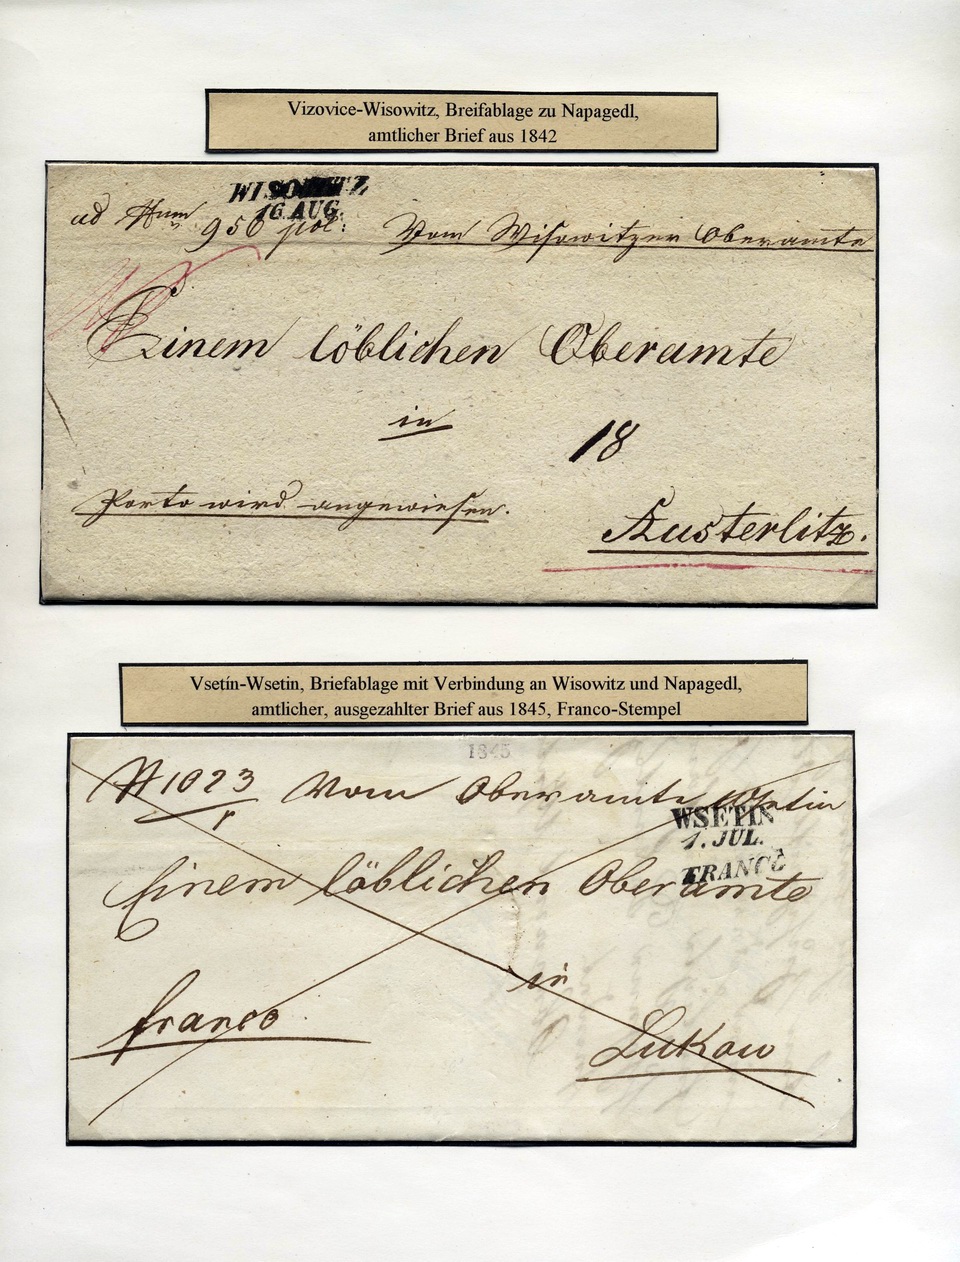 Vizovice-Wisowitz, Breifablage zu Napagedl,
amtlicher Brief aus 1842
WISOWITZ
16. AUG.
ad Num 956 pol: Vom Wisowitzer Oberamte
Einem löblichen Oberamte
in
18
Porto wird angewiesen.
Austerlitz.
Vsetín-Wsetin, Briefablage mit Verbindung an Wisowitz und Napagedl,
amtlicher, ausgezahlter Brief aus 1845, Franco-Stempel
1845
1023 Vom Oberamte Wsetin
WSETIN
1. JUL.
FRANCO
Einem löblichen Oberamte
in
franco
Lukow